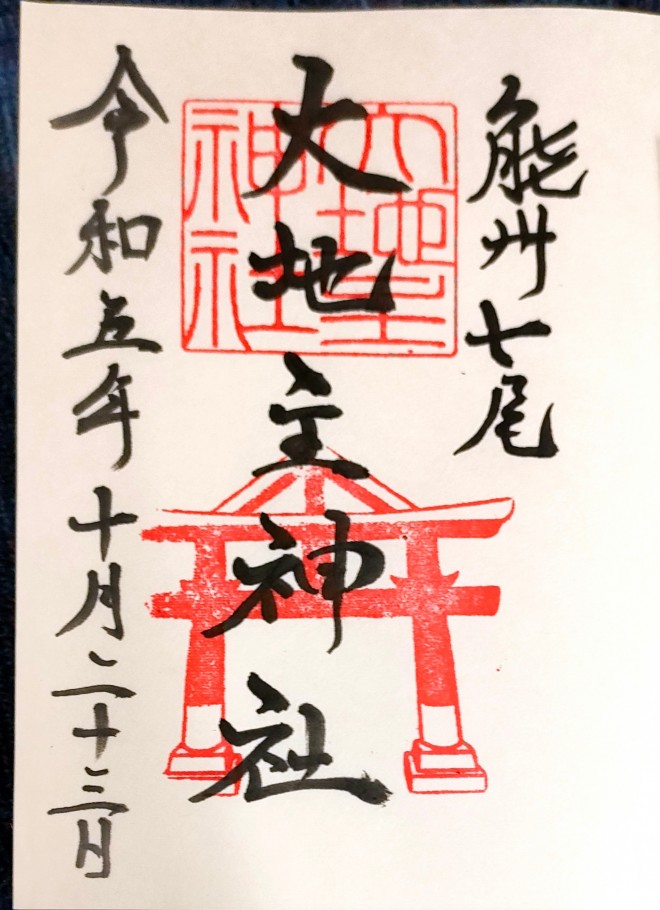 能州七尾
大地主神社
大地主神社
令和五年十月二十三日